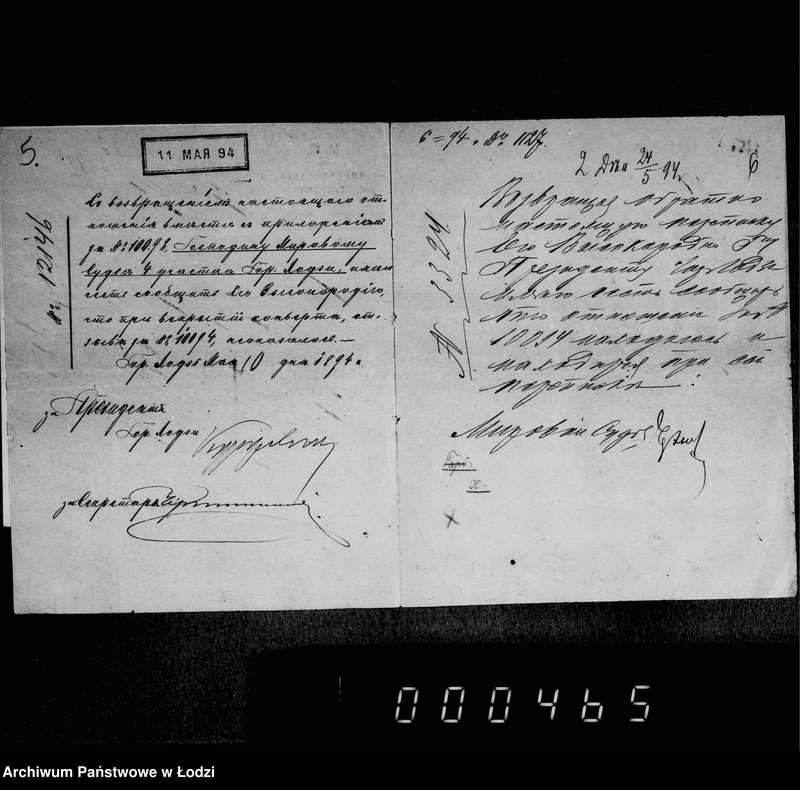 5.
11 МАЯ 94
№ 12146
Съ возвращеніемъ настоящаго от-
ношенія вмѣстѣ съ приложеніемъ
за № 10092, Господину Мировому
Судьѣ 4 участка Гор. Лодзи, имѣю
честь сообщить Его Высокородію,
что при вскрытіи конверта, от-
зыва за № 10094, не оказалось.—
Гор. Лодзь Мая 10 дня 1894 г.
за Президента
Гор. Лодзи
за Секретаря
6=94. № 1127.
2 Дня 24/5 94.
6
№ 3324
Возвращая обратно
настоящую переписку
Его Высокородію Гну
Президенту Гор. Лодзи
имѣю честь сообщить
что отношеніе за №
10094 находилось и
находится при сей
перепискѣ.
Мировой Судья
Х.
000465
Archiwum Państwowe w Łodzi